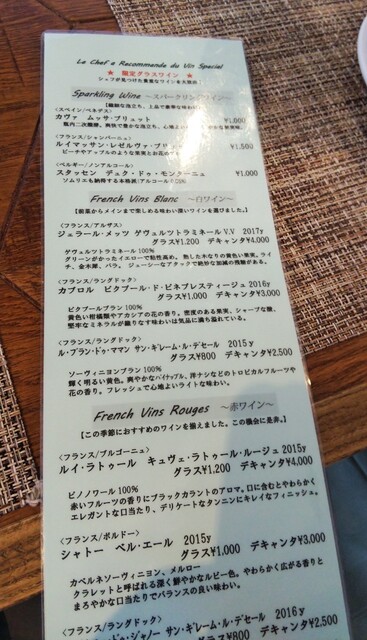 Le Chef a Recommande du Vin Special
★ 限定グラスワイン ★
シェフが見つけた素敵なワインを大放出
Sparkling Wine ～スパークリングワイン～
【繊細な泡立ち、上品で豪華な味わい
〈スペイン/ペネデス〉
カヴァ ムッサ・ブリュット ¥1,000
瓶内二次醗酵、爽快で豊かな泡立ち、心地
〈フランス/シャンパーニュ〉
ルイマッサン・レゼルヴァ・ブリ ¥1,500
ピーチやアップルのような果実とお花の
〈ベルギー/ノンアルコール〉
スタッセン デュク・ドゥ・モンターニュ ¥1,000
ソムリエも納得する本格派!アルコール0.0%
French Vins Blanc ～白ワイン～
【前菜からメインまで楽しめる味わい深いワインを選びました。】
〈フランス/アルザス〉
ジェラール・メッツ ゲヴュルツトラミネールV.V 2017y
グラス¥1,200 デキャンタ¥4,000
ゲヴュルツトラミネール100%
グリーンがかったイエローで粘性高め。 熟した木なりの黄色い果実。ライ
チ、金木犀、バラ。 ジューシーなアタックで絶妙な加減の残糖がある。
〈フランス/ラングドック〉
カブロル ピクプール・ド・ピネプレスティージュ 2016y
グラス¥1,000 デキャンタ¥3,000
ピクプールブラン100%
黄色い柑橘類やアカシアの花の香り。密度のある果実、シャープな酸、
堅牢なミネラルが織りなす味わいは気品に満ち溢れている。
〈フランス/ラングドック〉
ル・プラン・ドゥ・ママン サン・ギレーム・ル・デセール 2015y
グラス¥800 デキャンタ¥2,500
ソーヴィニヨンブラン100%
輝く明るい黄色。爽やかなパイナップル、洋ナシなどのトロピカルフルーツや
花の香り。フレッシュで心地よいライトな味わい。
French Vins Rouges ～赤ワイン～
【この季節におすすめのワインを揃えました。この機会に是非。】
〈フランス/ブルゴーニュ〉
ルイ・ラトゥール キュヴェ・ラトゥール・ルージュ 2015y
グラス¥1,200 デキャンタ¥4,000
ピノノワール100%
赤いフルーツの香りにブラックカラントのアロマ。口に含むとやわらかく
エレガントな口当たり、デリケートなタンニンにキレイなフィニッシュ。
〈フランス/ボルドー〉
シャトー ベル・エール 2015y
グラス¥1,000 デキャンタ¥3,000
カベルネソーヴィニヨン、メルロー
クラレットと呼ばれる深く鮮やかなルビー色。やわらかく広がる香りと
まろやかな口当たりでバランスの良い味わい。
〈フランス/ラングドック〉
サン・ギレーム・ル・デセール 2016y
グラス¥800 デキャンタ¥2,500